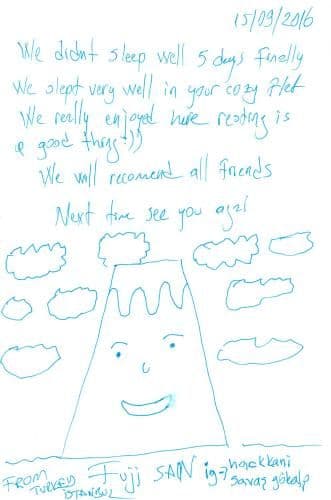 15/09/2016
We didnt sleep well 5 days finally
we slept very well in your cozy flet
We really enjoyed here resting is
a good thing :))
We will recomend all friends
Next time see you agai
FROM
TURKEY
ISTANBUL
Fuji SAN
ig→ hackkani
savaş gökalp